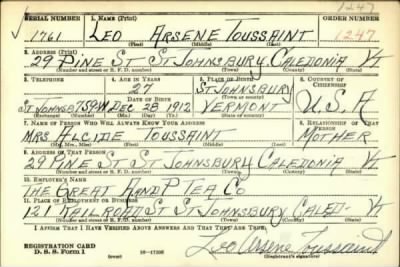 1247
SERIAL NUMBER 1. NAME (Print) ORDER NUMBER
1761 LEO ARSENE TOUSSAINT 1247
(First) (Middle) (Last)
2. ADDRESS (Print)
29 PINE ST ST JOHNSBURY CALEDONIA Vt
(Number and street or R. F. D. number) (Town) (County) (State)
3. TELEPHONE 4. AGE IN YEARS 5. PLACE OF BIRTH 6. COUNTRY OF CITIZENSHIP
27 ST JOHNSBURY
DATE OF BIRTH
ST JOHNSB 759W DEC 28 1912 VERMONT U.S.A
7. NAME OF PERSON WHO WILL ALWAYS KNOW YOUR ADDRESS 8. RELATIONSHIP OF THAT PERSON
MRS ALCIDE TOUSSAINT MOTHER
(Mr., Mrs., Miss) (First) (Middle) (Last)
9. ADDRESS OF THAT PERSON
29 PINE ST ST JOHNSBURY CALEDONIA Vt
(Number and street or R. F. D. number) (Town) (County) (State)
10. EMPLOYER'S NAME
THE GREAT A and P TEA Co
11. PLACE OF EMPLOYMENT OR BUSINESS
121 RAILROAD ST ST JOHNSBURY CALED- Vt
(Number and street or R. F. D. number) (Town) (County) (State)
I AFFIRM THAT I HAVE VERIFIED ABOVE ANSWERS AND THAT THEY ARE TRUE.
REGISTRATION CARD
D. S. S. Form 1 16-17105 Leo Arsene Toussaint
(Registrant's signature)